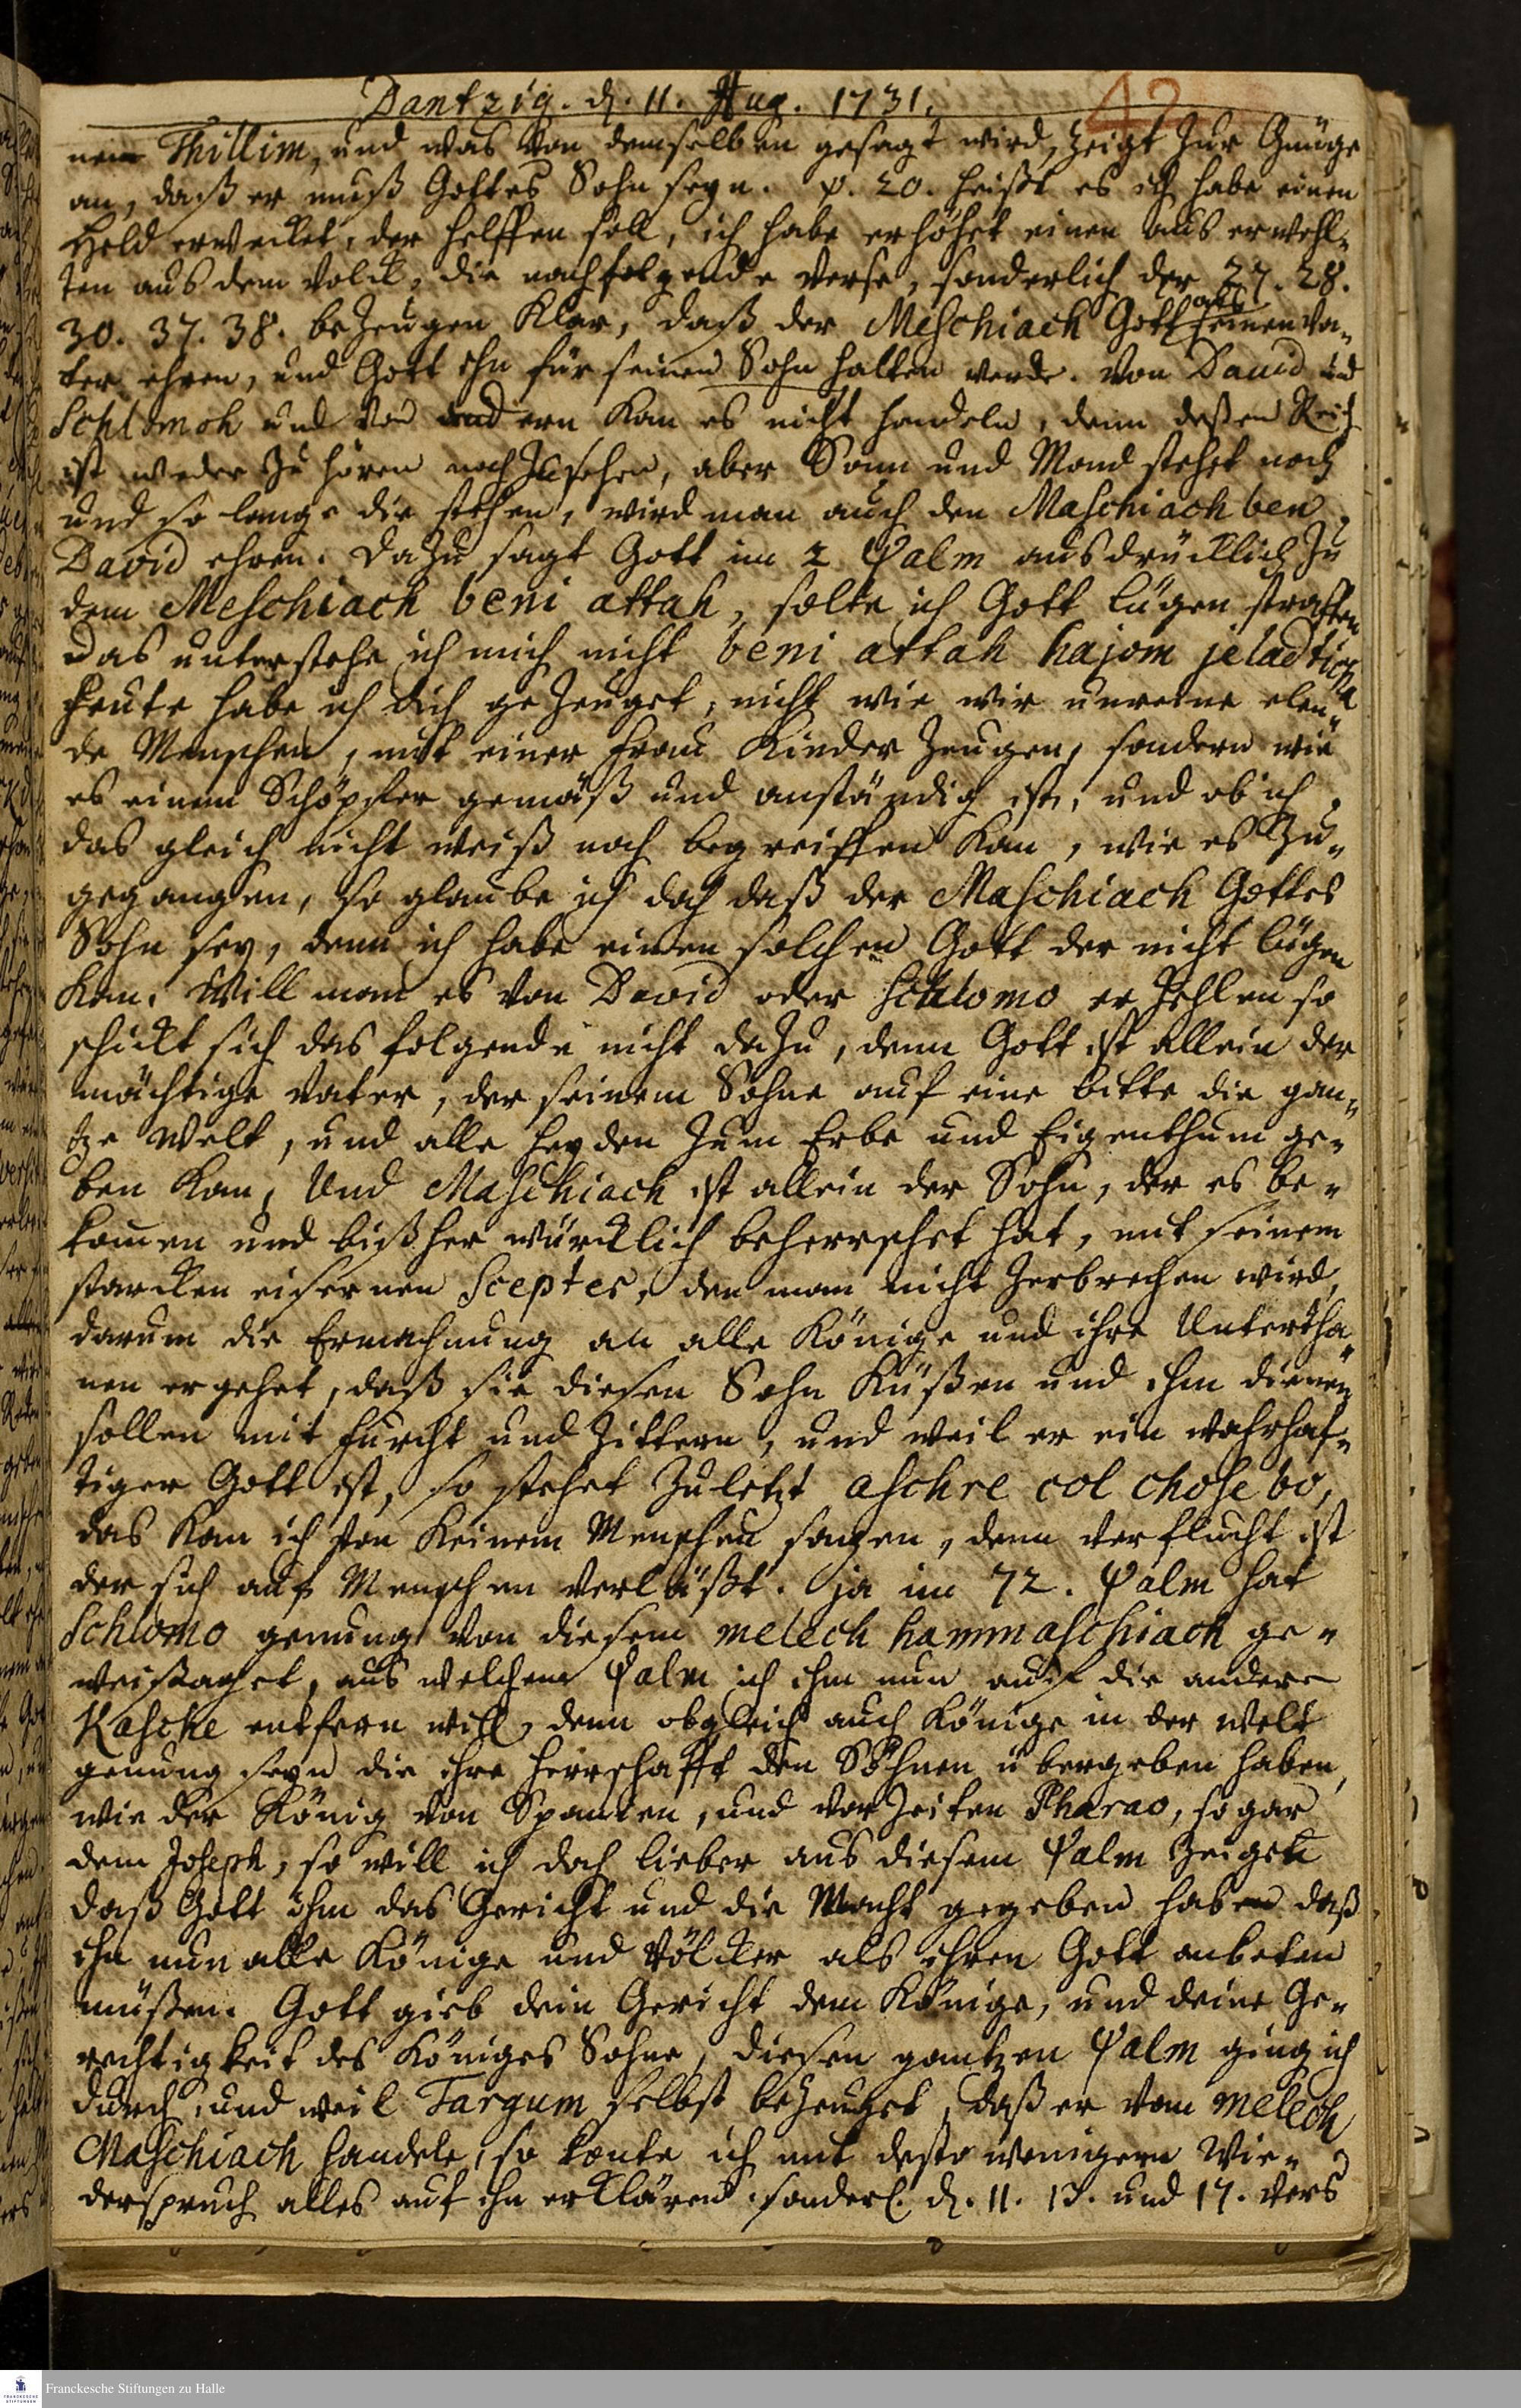 Dantzig. d. 11. Aug. 1731.
42
nem Thillim, und was von demselben gesagt wird, zeigt zur Gnüge
an, daß er muß Gottes Sohn seyn. p. 20. heißt es ich habe einen
Held erwecket, der helffen soll, ich habe erhöhet einen aus erwehl-
ten aus dem Volck, die nachfolgende Verse, sonderlich der 27. 28.
30. 37. 38. bezeugen klar, daß der Meschiach Gott als seinen Va-
ter ehren, und Gott ihn für seinen Sohn halten werde. von David und
Schlomoh und von andern kan es nicht handeln, denn deßen Reich
ist weder zu hören noch zu sehen, aber Sonn und Mond stehet noch
und so lange die stehen, wird man auch den Maschiach ben
David ehren. Dazu sagt Gott im 2 Psalm ausdrücklich zu
dem Meschiach beni attah, solte ich Gott lügen straffen
das unterstehe ich mich nicht beni attah hajom jeladticha
heute habe ich dich gezeuget, nicht wie wir unreine elen-
de Menschen, mit einer Frau Kinder zeugen, sondern wie
es einem Schöpffer gemäß und anständig ist, und ob ich
das gleich nicht weiß noch begreiffen kan, wie es zu-
gegangen, so glaube ich doch daß der Maschiach Gottes
Sohn sey, denn ich habe einen solchen Gott der nicht lügen
kan. Will man es von David oder Schlomo erzehlen so
schickt sich das folgende nicht dazu, denn Gott ist allein der
mächtige Vater, der seinem Sohne auf eine bitte die gan-
tze Welt, und alle Heyden zum Erbe und Eigenthum ge-
ben kan, Und Maschiach ist allein der Sohn, der es be-
komen und bißher würcklich beherrschet hat, mit seinem
starcken eisernen Scepter, den man nicht zerbrechen wird,
darum die Ermahnung an alle Könige und ihre Untertha-
nen ergehet, daß sie diesen Sohn Küßen und ihm dienen
sollen mit furcht und zittern, und weil er ein wahrhaf-
tiger Gott ist, so stehet zuletzt aschre col chose bo,
das kan ich von keinem Menschen sagen, denn verflucht ist
der sich auf Menschen verläßt. ja im 72. Psalm hat
Schlomo genung von diesem melech hammaschiach ge-
weissaget, aus welchem Psalm ich ihm nun auf die andere
Kasche antworten will, denn obgleich auch Könige in der Welt
genung seyn die ihre Herrschafft den Söhnen übergeben haben,
wie der König von Spanien, und vor Zeiten Pharao, sogar
dem Joseph, so will ich doch lieber aus diesem Psalm zeigen
daß Gott ihm das Gericht und die Macht gegeben haben daß
ihn nun alle Könige und Völcker als ihren Gott anbeten
müßen. Gott gieb dein Gericht dem Könige, und deine Ge-
rechtigkeit des Königes Sohne, diesen gantzen Psalm ging ich
durch, und weil Targum selbst bezeuget, daß er vom melech
Maschiach handele, so konte ich mit desto wenigern Wie-
derspruch alles auf ihn erklären. sonderl. d. 11. 13. und 17. Vers
FRANCKESCHE STIFTUNGEN
Franckesche Stiftungen zu Halle